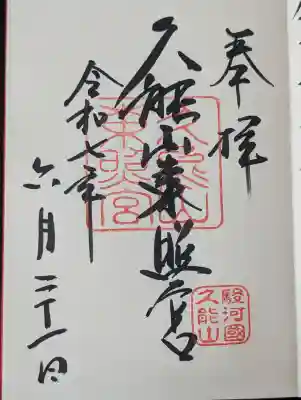 奉拝
久能山東照宮
令和七年
六月二十一日
久能山
東照宮
駿河國
久能山